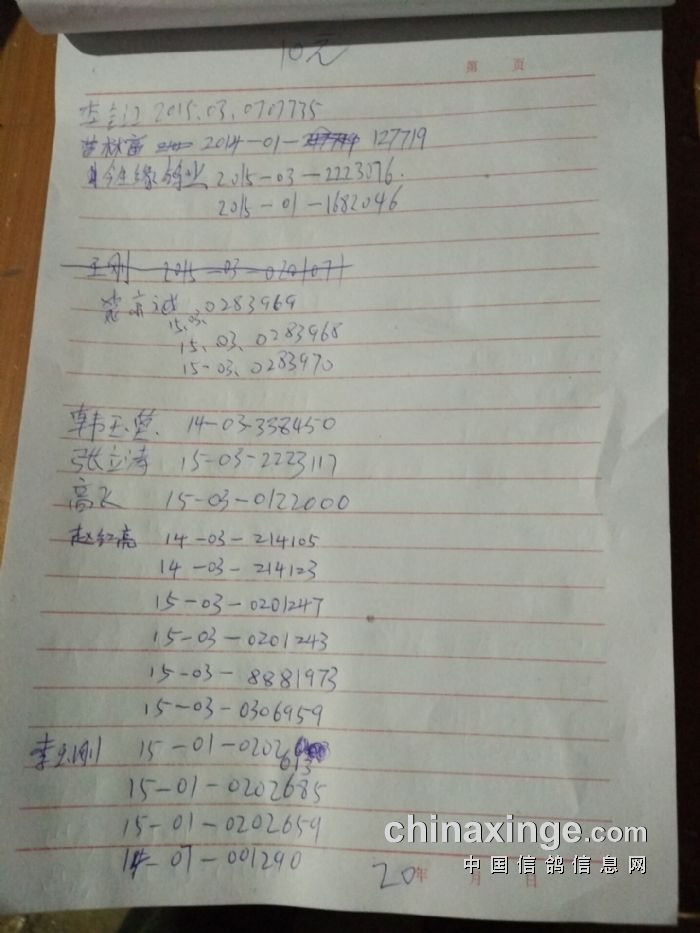 10元
第 页
2015.03.0707735
2014-01- 127719
今生缘鸽业 2015-03-2223076.
2015-01-1682046
王刚 2015-03-0301071
0283969
15.03.
15.03.0283968
15-03.0283970
韩玉 14-03-338450
张立涛 15-03-2223117
高飞 15-03-0122000
赵红亮 14-03-214105
14-03-214123
15-03-0201247
15-03-0201243
15-03-8881973
15-03-0306959
李玉刚 15-01-0202613
15-01-0202685
15-01-0202659
14-01-001290
20年 月 日
chinaxinge.com
中国信鸽信息网